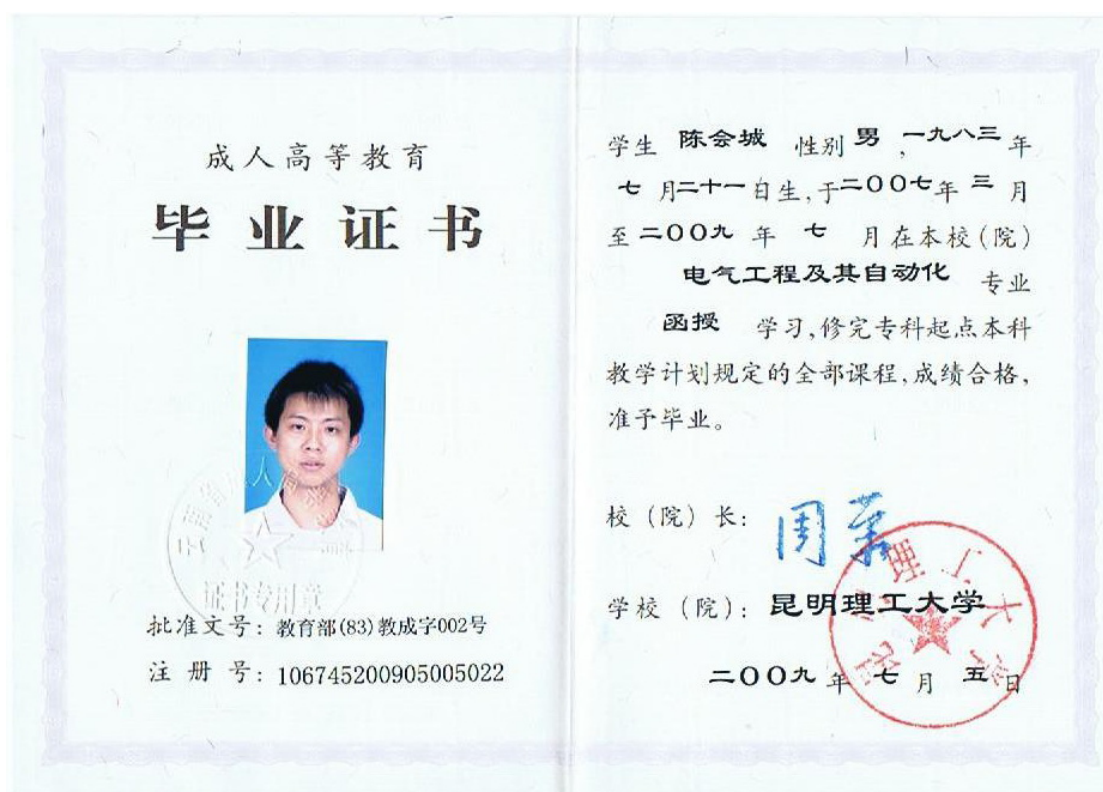 成人高等教育
毕业证书
证书专用章
批准文号：教育部(83)教成字002号
注册号：106745200905005022
学生 陈会城 性别 男，一九八三年
七月二十一日生，于二〇〇七年三月
至二〇〇九年七月在本校(院)
电气工程及其自动化 专业
函授 学习，修完专科起点本科
教学计划规定的全部课程，成绩合格，
准予毕业。
校（院）长：周
学校（院）：昆明理工大学
二〇〇九年七月五日
昆明理工大学